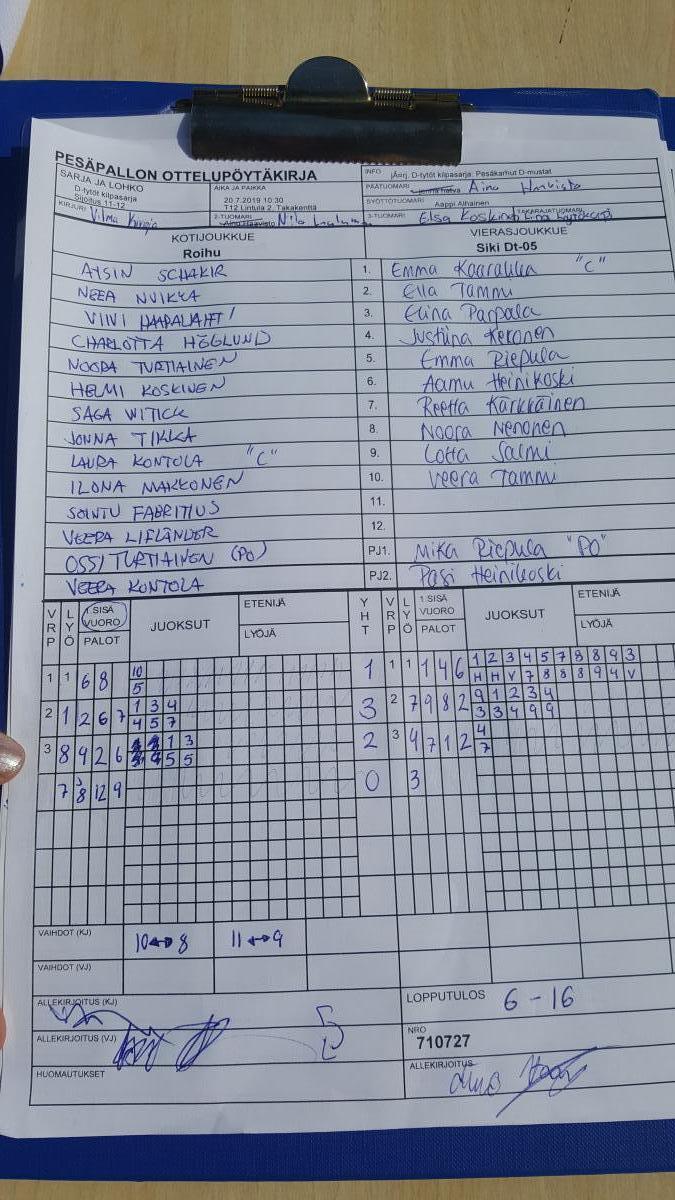 PESÄPALLON OTTELUPÖYTÄKIRJA
SARJA JA LOHKO
D-tytöt kilpasarja
Sijoitus 11-12
AIKA JA PAIKKA
20.7.2019 10:30
T12 Lintula 2. Takakenttä
INFO Järj. D-tytöt kilpasarja: Pesäkarhut D-mustat
PÄÄTUOMARI Aino
SYÖTTÖTUOMARI Aappi Alhainen
KIRJURI Vilma
2-TUOMARI
3-TUOMARI Elsa Koskinen
TAKARAJATUOMARI
KOTIJOUKKUE
Roihu
VIERASJOUKKUE
Siki Dt-05
AYSIN SCHAKIR 1. Emma "C"
NEEA NUIKKA 2. Ella Tammi
VIIVI HAAPALAHTI 3. Elina Parpala
CHARLOTTA HÖGLUND 4. Justiina Keronen
NOORA TURTIAINEN 5. Emma Riepula
HELMI KOSKINEN 6. Aamu Heinikoski
SAGA WITICK 7. Reetta Kärkkäinen
JONNA TIKKA 8. Noora Nenonen
LAURA KONTOLA "C" 9. Lotta Salmi
ILONA MAKKONEN 10. Veera Tammi
SOINTU FABRITIUS 11.
VEERA LIFLÄNDER 12.
OSSI TURTIAINEN (PO) PJ1. Mika Riepula "PO"
VEERA KONTOLA PJ2. Pasi Heinikoski
VRP LYÖ 1.SISÄ VUORO PALOT JUOKSUT ETENIJÄ LYÖJÄ YHT VRP LYÖ 1.SISÄ VUORO PALOT JUOKSUT ETENIJÄ LYÖJÄ
1 1 6 8 10 1 1 1 1 4 6 1 2 3 4 5 7 8 8 9 3
5 H H V 7 8 8 8 9 4 V
2 1 2 6 7 1 3 4 3 2 7 9 8 2 9 1 2 3 4
4 5 7 3 3 4 9 9
3 8 9 2 6 1 3 2 3 4 7 1 2 4
5 5 7
7 8 12 9 0 3
VAIHDOT (KJ) 10↔8 11↔9
VAIHDOT (VJ)
ALLEKIRJOITUS (KJ)
LOPPUTULOS 6 - 16
ALLEKIRJOITUS (VJ)
NRO
710727
HUOMAUTUKSET
ALLEKIRJOITUS